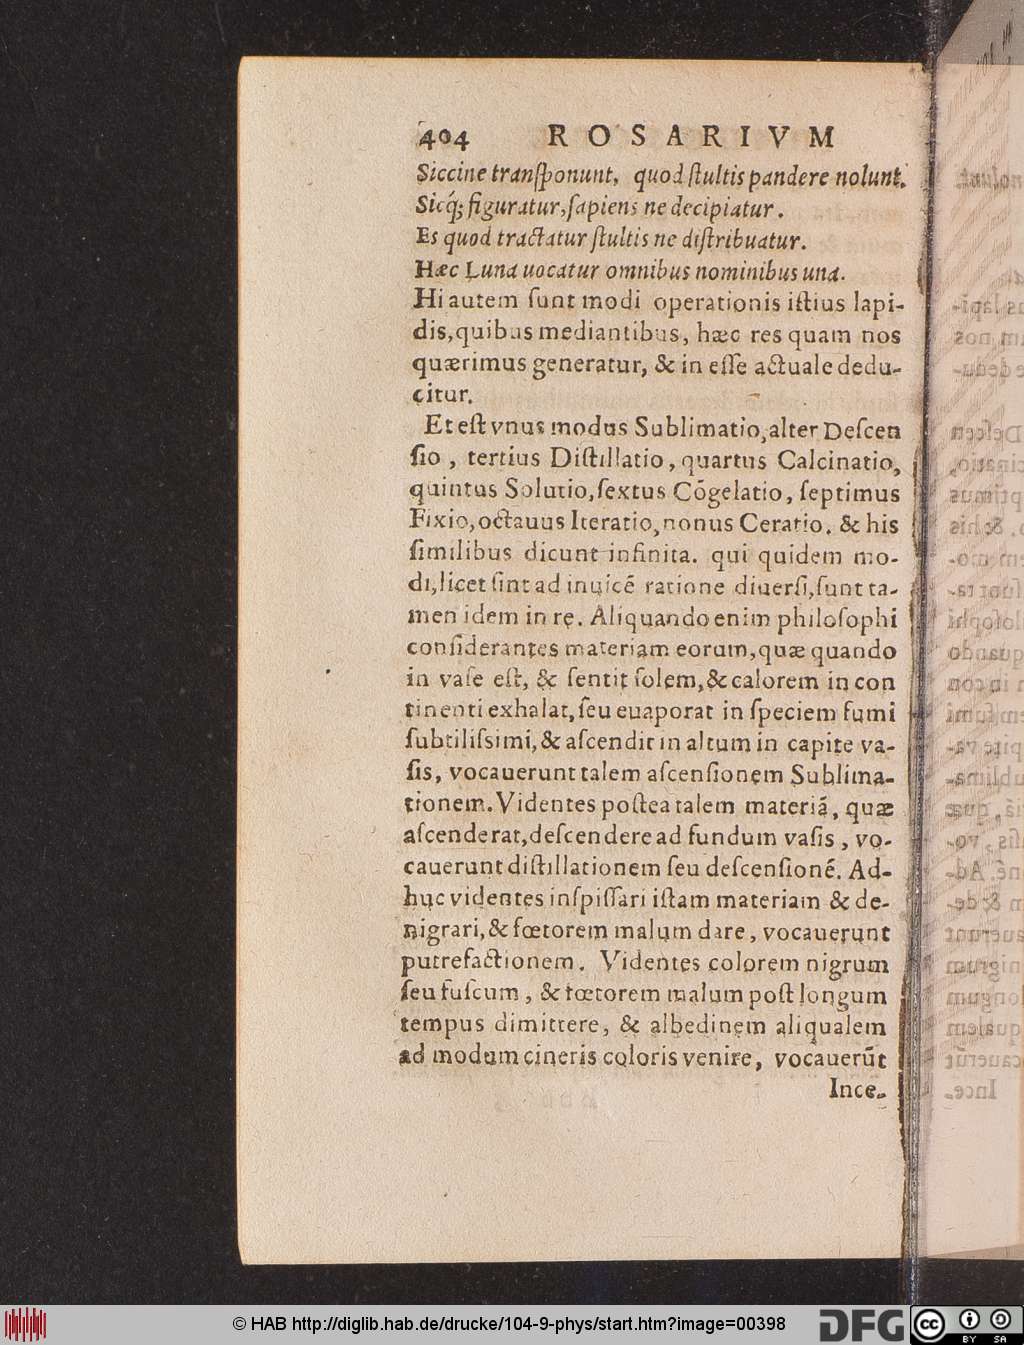 404 ROSARIVM
Siccine transponunt, quod ſtultis pandere nolunt.
Sicq́; figuratur, ſapiens ne decipiatur.
Es quod tractatur ſtultis ne diſtribuatur.
Hæc Luna uocatur omnibus nominibus una.
Hi autem ſunt modi operationis iſtius lapi-
dis, quibus mediantibus, hæc res quam nos
quærimus generatur, & in eſſe actuale dedu-
citur.
Et eſt vnus modus Sublimatio, alter Deſcen
ſio, tertius Diſtillatio, quartus Calcinatio,
quintus Solutio, ſextus Cõgelatio, ſeptimus
Fixio, octauus Iteratio, nonus Ceratio. & his
ſimilibus dicunt infinita. qui quidem mo-
di, licet ſint ad inuicé ratione diuerſi, ſunt ta-
men idem in re. Aliquando enim philoſophi
conſiderantes materiam eorum, quæ quando
in vaſe eſt, & ſentit ſolem, & calorem in con
tinenti exhalat, ſeu euaporat in ſpeciem fumi
ſubtiliſsimi, & aſcendit in altum in capite va-
ſis, vocauerunt talem aſcenſionem Sublima-
tionem. Videntes poſtea talem materiá, quæ
aſcenderat, deſcendere ad fundum vaſis, vo-
cauerunt diſtillationem ſeu deſcenſioné. Ad-
huc videntes inſpiſſari iſtam materiam & de-
nigrari, & fœtorem malum dare, vocauerunt
putrefactionem. Videntes colorem nigrum
ſeu fuſcum, & fœtorem malum poſt longum
tempus dimittere, & albedinem aliqualem
ad modum cineris coloris venire, vocauerũt
Ince-
© HAB http://diglib.hab.de/drucke/104-9-phys/start.htm?image=00398
DFG
cc
BY SA